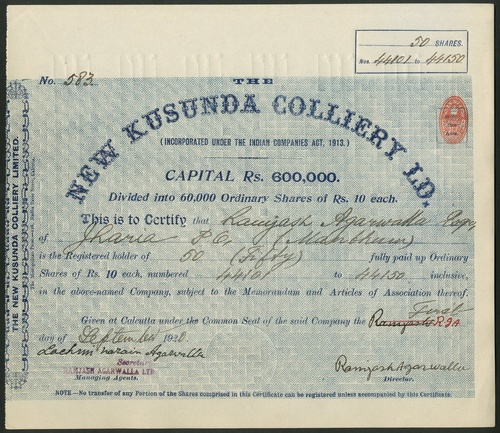 50 SHARES.
Nos. 44101 to 44150
No. 583
THE
NEW KUSUNDA COLLIERY LD.
(INCORPORATED UNDER THE INDIAN COMPANIES ACT, 1913.)
CAPITAL Rs. 600,000.
Divided into 60,000 Ordinary Shares of Rs. 10 each.
This is to Certify that Ramjash Agarwalla Esqr,
of Jharia P.O. (Manbhum)
is the Registered holder of 50 (Fifty) fully paid up Ordinary
Shares of Rs. 10 each, numbered 44101 to 44150 inclusive,
in the above-named Company, subject to the Memorandum and Articles of Association thereof.
Given at Calcutta under the Common Seal of the said Company the First
day of September 1920
Lachmi narain Agarwalla
Secretary
RAMJASH AGARWALLA LTD
Managing Agents.
Ramjash Agarwalla
Director.
NOTE—No transfer of any Portion of the Shares comprised in this Certificate can be registered unless accompanied by this Certificate.
THE NEW KUSUNDA COLLIERY LIMITED.